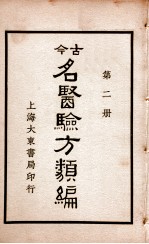 第二册
古今
名醫驗方類編
上海大東書局印行